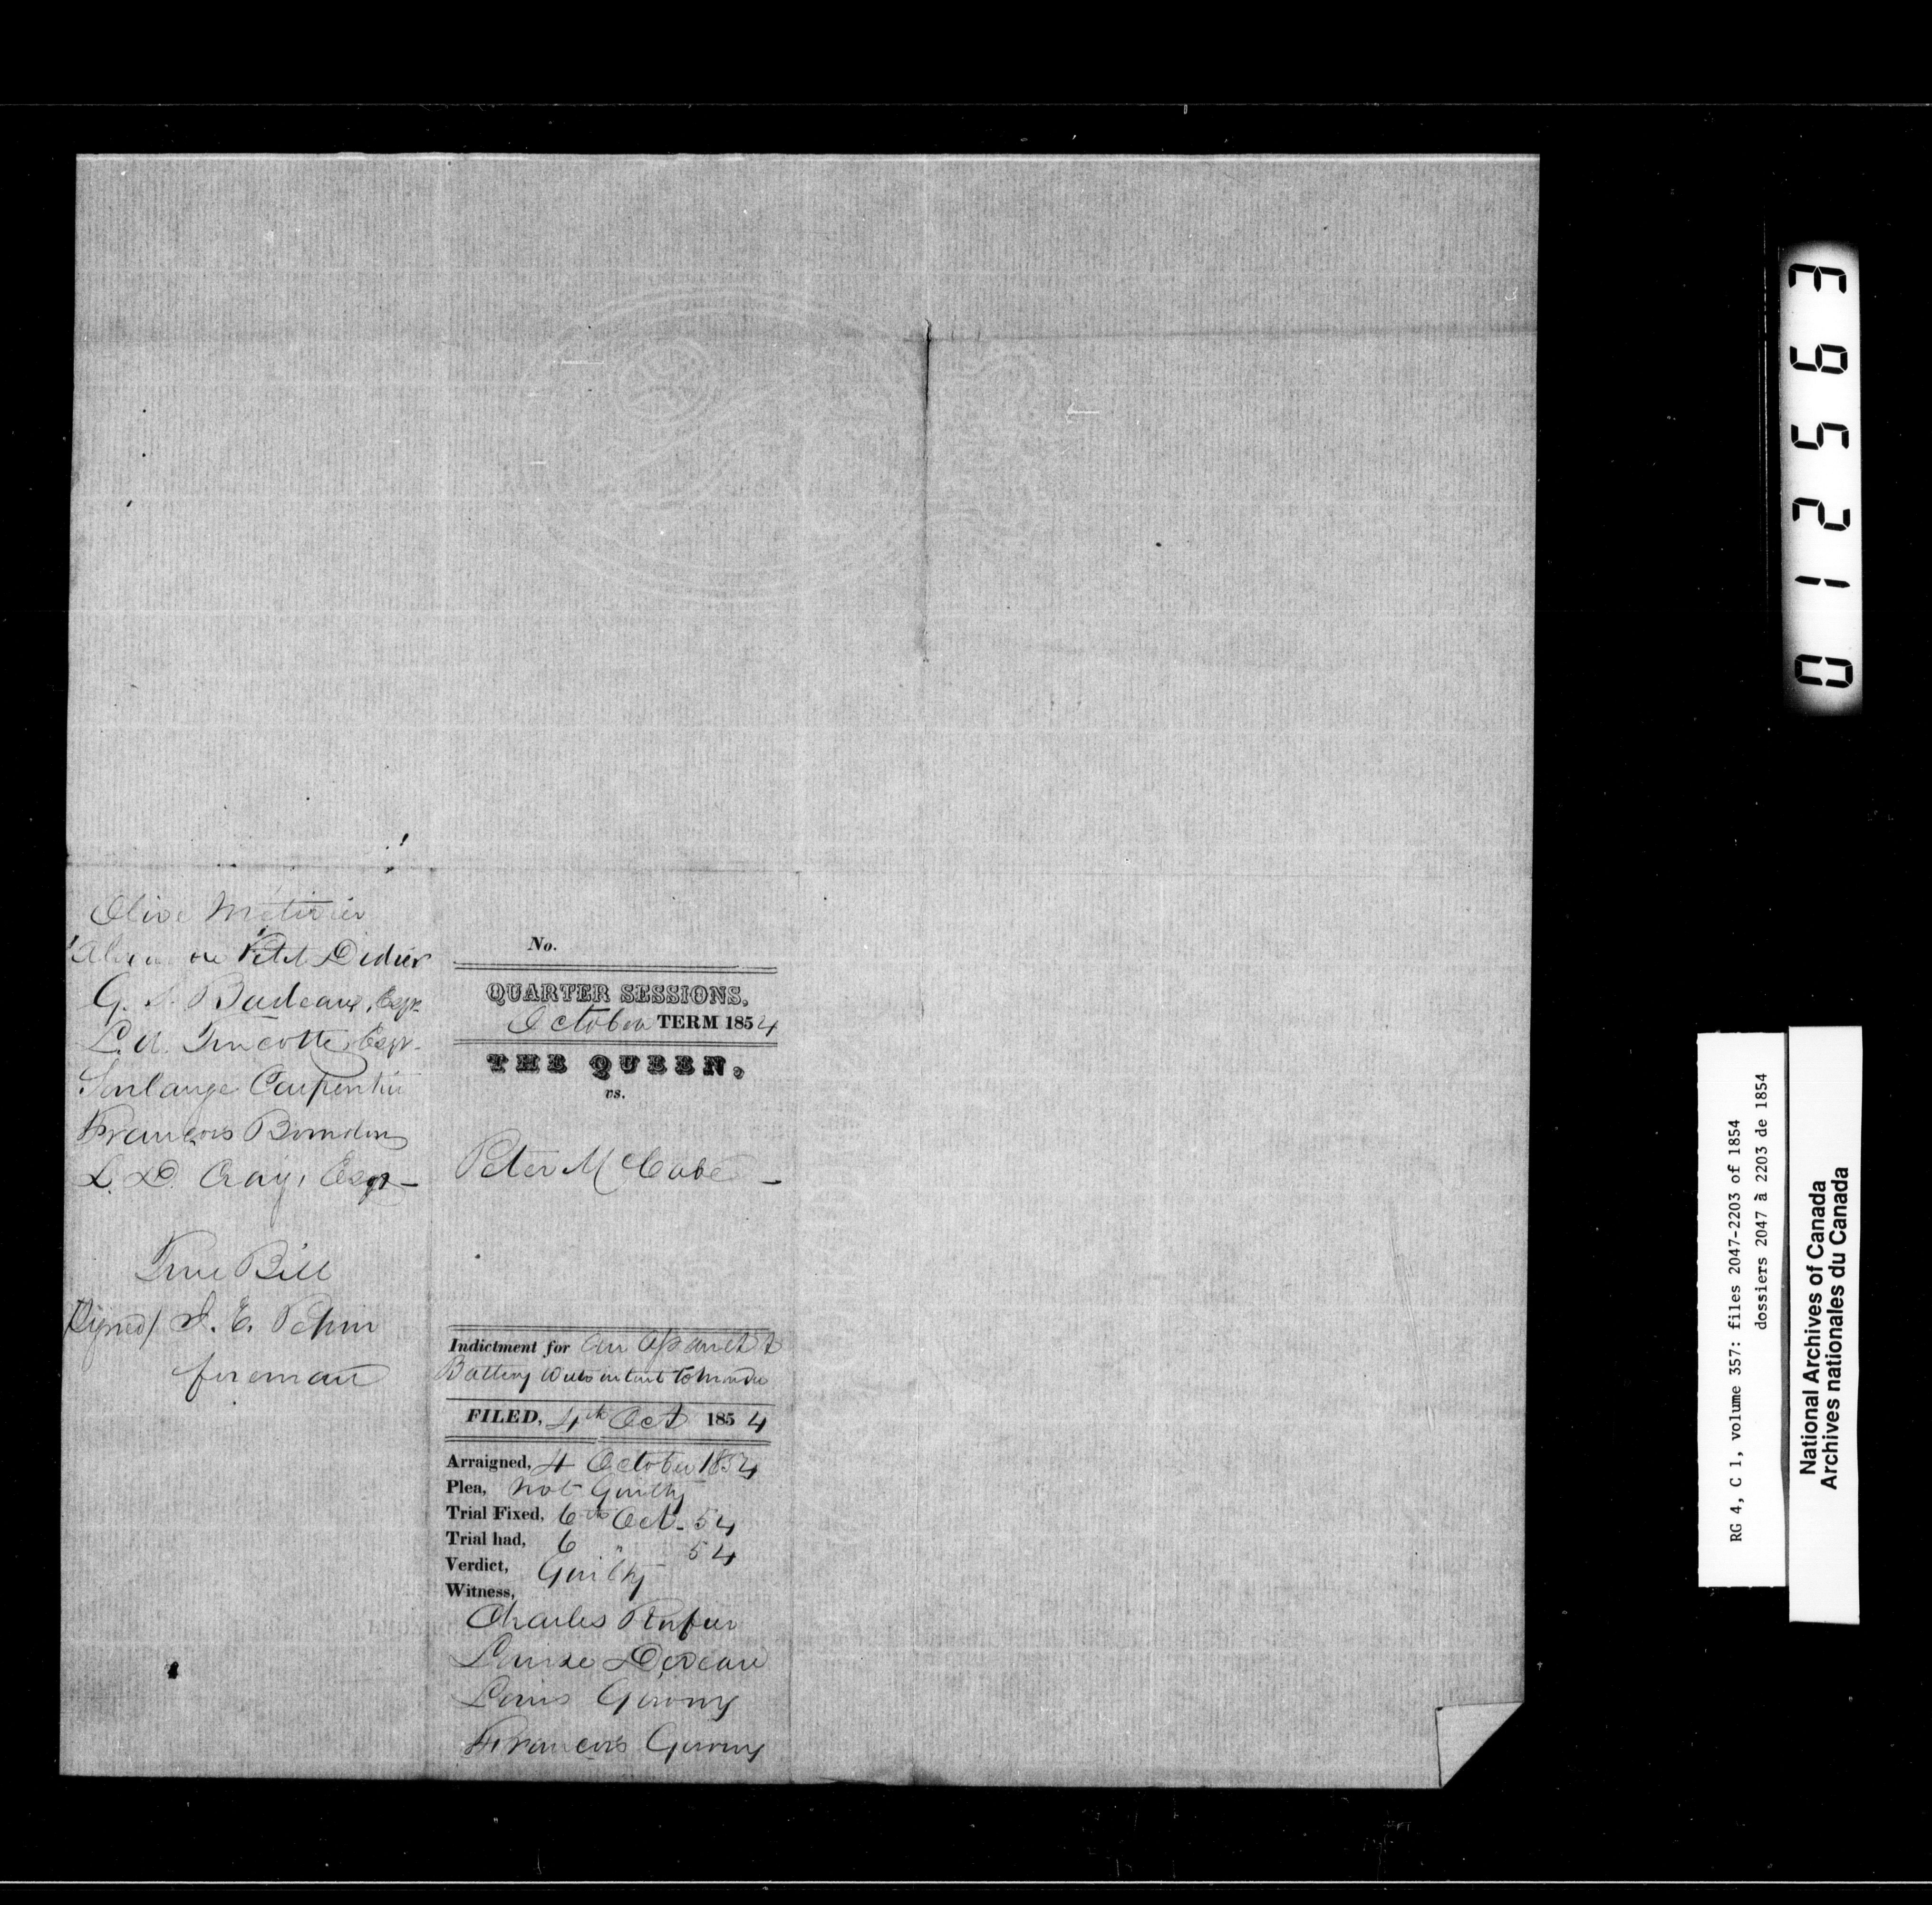 Olive Métivier
Petit Didier
G. S. Badeaux, Esqr.
L. A. Turcotte, Esqr.
Soulange Carpentier
François Bourdon
L. D. Craig, Esqr —
True Bill
(Signed) J. E. Pepin
foreman
No.
QUARTER SESSIONS.
October TERM 1854
THE QUEEN,
vs.
Peter McCabe —
Indictment for an Assault &
Battery with intent to murder
FILED, 4th Oct 1854
Arraigned, 4 October 1854
Plea, Not Guilty
Trial Fixed, 6th Oct. 54
Trial had, 6 " 54
Verdict, Guilty
Witness,
Charles
Louise
Louis
François
012563
RG 4, C 1, volume 357: files 2047-2203 of 1854
dossiers 2047 à 2203 de 1854
National Archives of Canada
Archives nationales du Canada